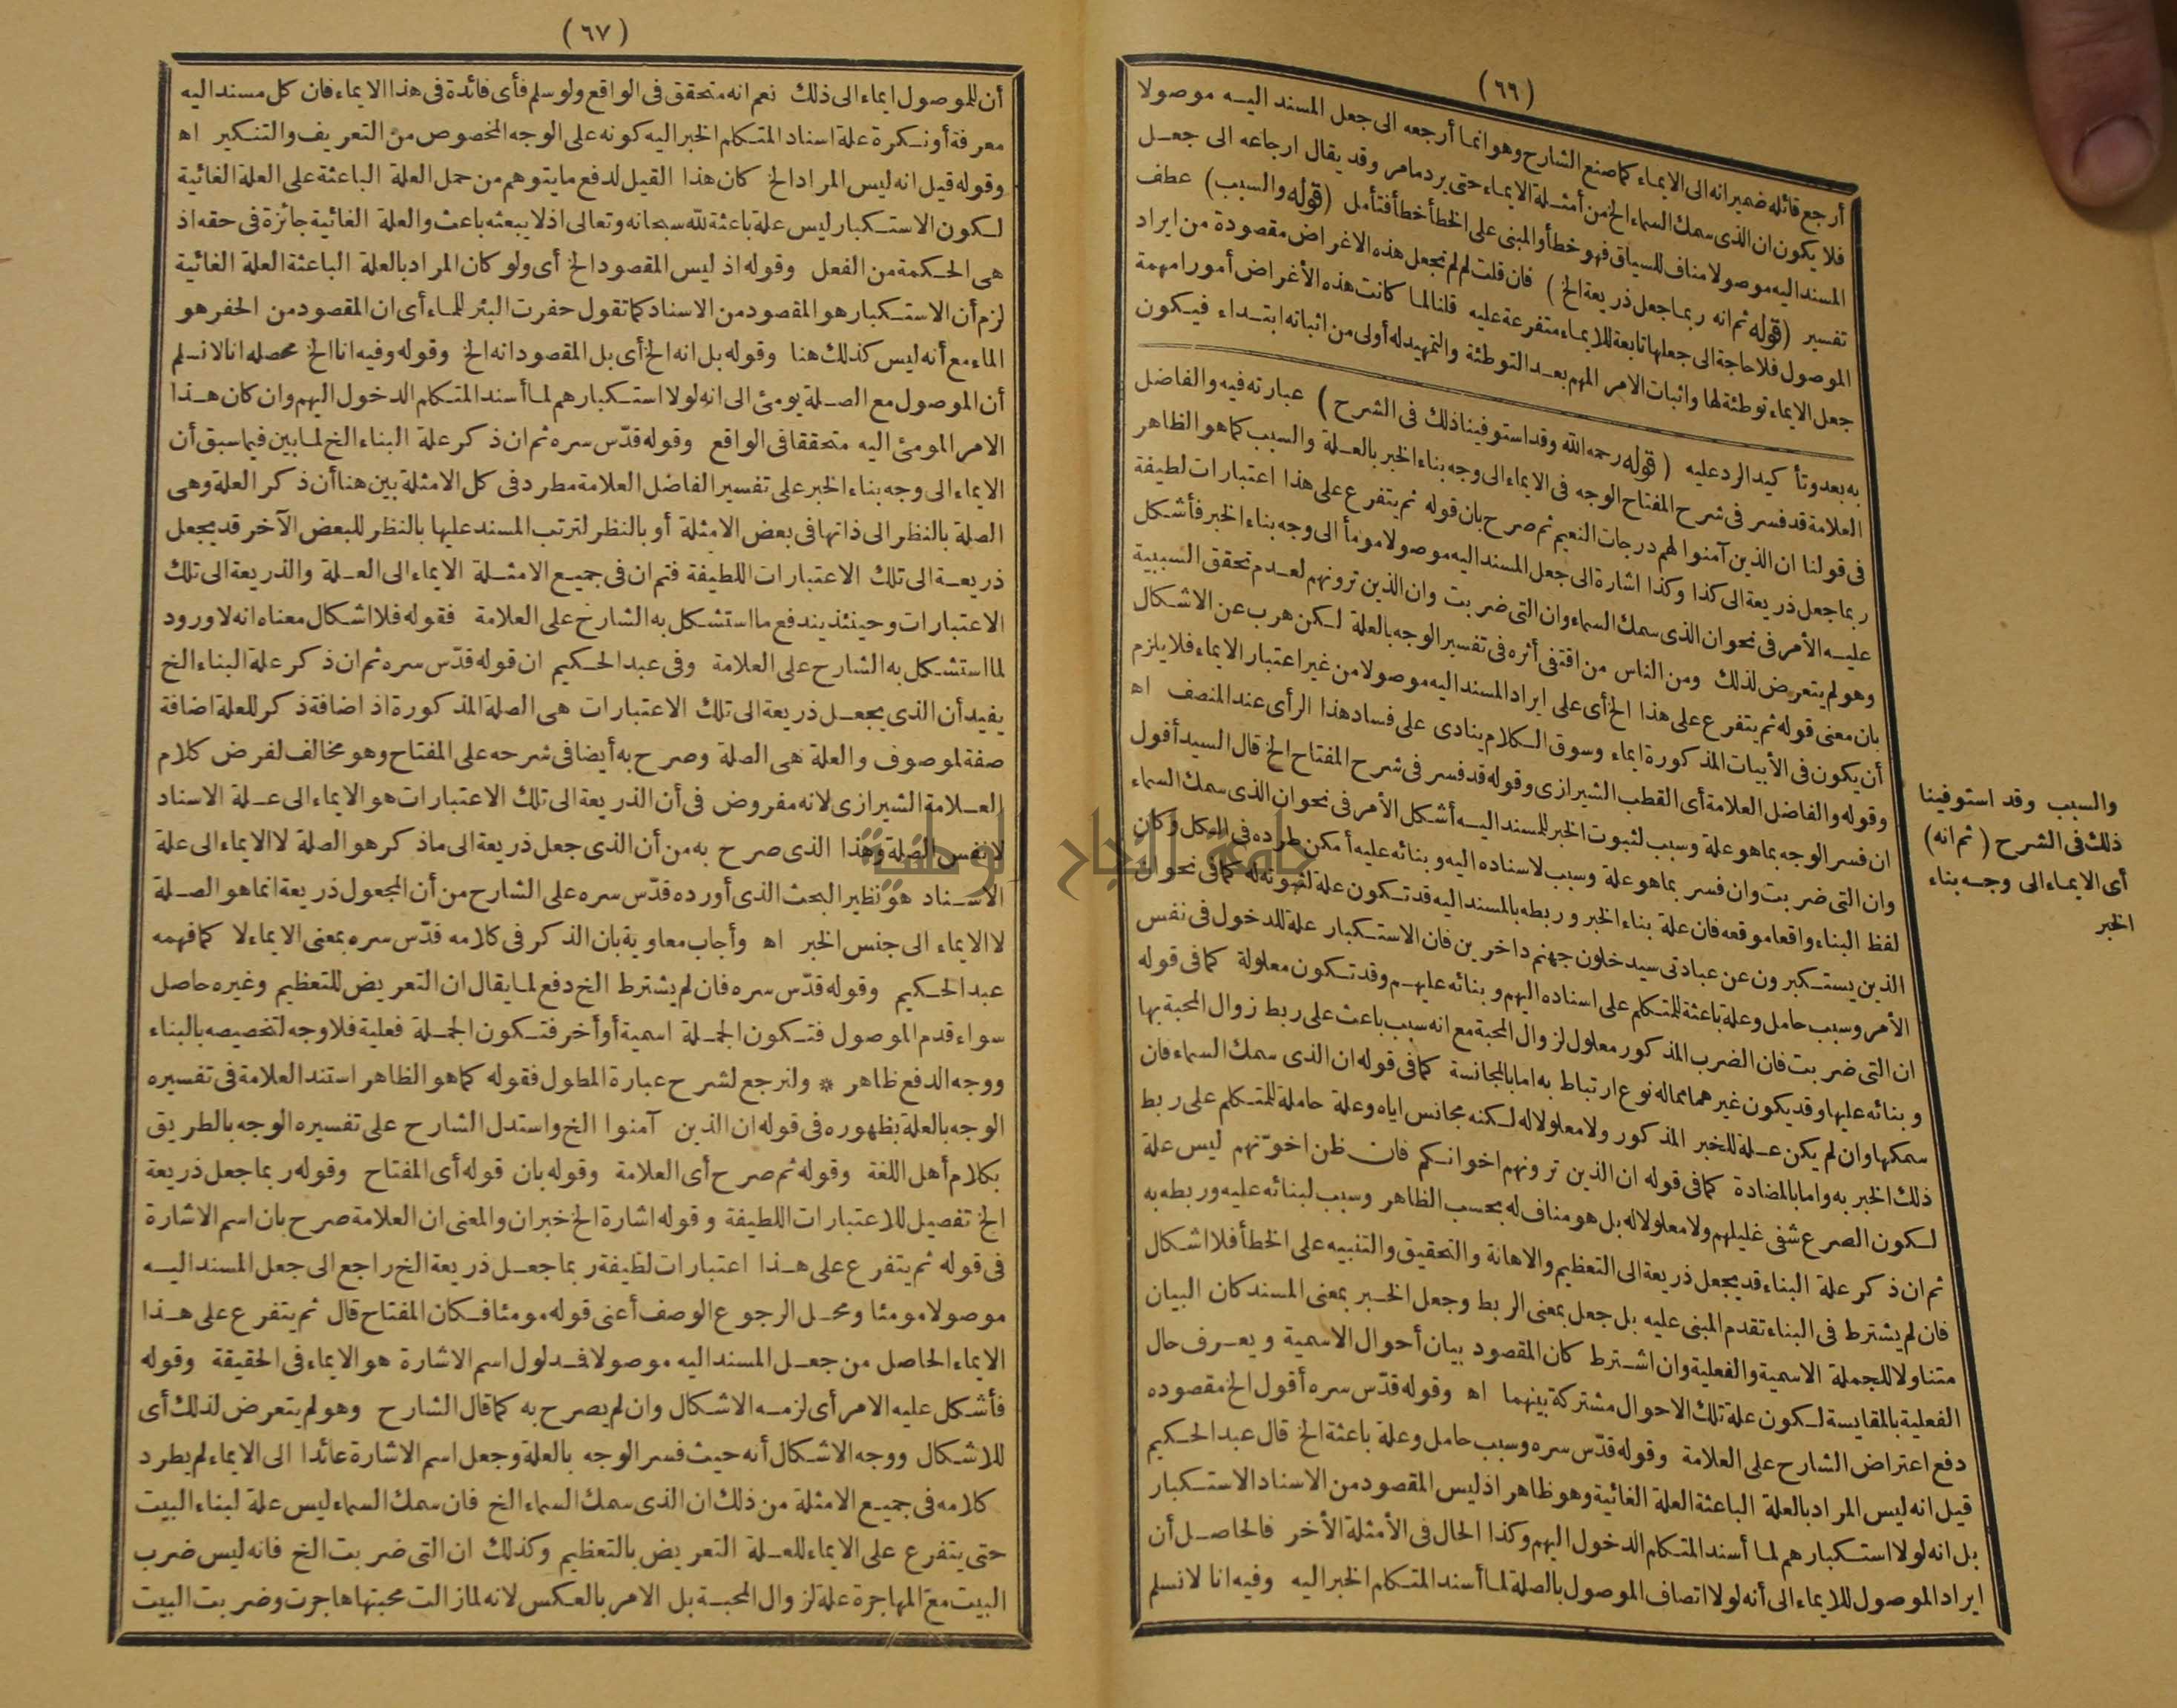 (٦٦)
أرجع قائله ضمير انه الى الايماء كما صنع الشارح وهو انما أرجعه الى جعل المسند اليه موصولا
فلا يكون ان الذى سمك السماء الخ من أمثلة الايماء حتى يرد مامر وقد يقال ارجاعه الى جعل
المسند اليه موصولا مناف للسياق فهو خطأ والمبنى على الخطأ خطأ فتأمل (قوله والسبب) عطف
تفسير (قوله ثم انه ربما جعل ذريعة الخ) فان قلت لم لم تجعل هذه الاغراض مقصودة من ايراد
الموصول فلا حاجة الى جعلها تابعة للايماء متفرعة عليه قلنا لما كانت هذه الأغراض أمورا مهمة
جعل الايماء توطئة لها واثبات الامر المهم بعد التوطئة والتمهيد له أولى من اثباته ابتداء فيكون
به بعد وتأكيد الرد عليه (قوله رحمه الله وقد استوفينا ذلك فى الشرح) عبارته فيه والفاضل
العلامة قد فسر فى شرح المفتاح الوجه فى الايماء الى وجه بناء الخبر بالعلة والسبب كما هو الظاهر
فى قولنا ان الذين آمنوا لهم درجات النعيم ثم صرح بان قوله ثم يتفرع على هذا اعتبارات لطيفة
ربما جعل ذريعة الى كذا وكذا اشارة الى جعل المسند اليه موصولا مومأ الى وجه بناء الخبر فأشكل
عليه الأمر فى نحو ان الذى سمك السماء وان التى ضربت وان الذين ترونهم لعدم تحقق السببية
وهو لم يتعرض لذلك ومن الناس من اقتفى أثره فى تفسير الوجه بالعلة لكن هرب عن الاشكال
بان معنى قوله ثم يتفرع على هذا الخ أى على ايراد المسند اليه موصولا من غير اعتبار الايماء فلا يلزم
أن يكون فى الأبيات المذكورة ايماء وسوق الكلام ينادى على فساد هذا الرأى عند المنصف اه
وقوله والفاضل العلامة أى القطب الشيرازى وقوله قد فسر فى شرح المفتاح الخ قال السيد أقول
ان فسر الوجه بما هو علة وسبب لثبوت الخبر للمسند اليه أشكل الأمر فى نحو ان الذى سمك السماء
وان التى ضربت وان فسر بما هو علة وسبب لاسناده اليه وبنائه عليه أمكن طرده فى الكل وكان
لفظ البناء واقعا موقعه فان علة بناء الخبر وربطه بالمسند اليه قد تكون علة لثبوته له كما فى نحو ان
الذين يستكبرون عن عبادتى سيدخلون جهنم داخرين فان الاستكبار علة للدخول فى نفس
الأمر وسبب حامل وعلة باعثة للمتكلم على اسناده اليهم وبنائه عليهم وقد تكون معلولة كما فى قوله
ان التى ضربت فان الضرب المذكور معلول لزوال المحبة مع انه سبب باعث على ربط زوال المحبة بها
وبنائه عليها وقد يكون غيرهما مما له نوع ارتباط به اما بالمجانسة كما فى قوله ان الذى سمك السماء فان
سمكها وان لم يكن علة للخبر المذكور ولا معلولا له لكنه مجانس اياه وعلة حاملة للمتكلم على ربط
ذلك الخبر به واما بالمضادة كما فى قوله ان الذين ترونهم اخوانكم فان ظن اخوّتهم ليس علة
لكون الصرع شفى غليلهم ولا معلولا له بل هو مناف له بحسب الظاهر وسبب لبنائه عليه وربطه به
ثم ان ذكر علة البناء قد يجعل ذريعة الى التعظيم والاهانة والتحقيق والتنبيه على الخطأ فلا اشكال
فان لم يشترط فى البناء تقدم المبنى عليه بل جعل بمعنى الربط وجعل الخبر بمعنى المسند كان البيان
متناولا للجملة الاسمية والفعلية وان اشترط كان المقصود بيان أحوال الاسمية ويعرف حال
الفعلية بالمقايسة لكون علة تلك الاحوال مشتركة بينهما اه وقوله قدّس سره أقول الخ مقصوده
دفع اعتراض الشارح على العلامة وقوله قدّس سره وسبب حامل وعلة باعثة الخ قال عبد الحكيم
قيل انه ليس المراد بالعلة الباعثة العلة الغائية وهو ظاهر اذ ليس المقصود من الاسناد الاستكبار
بل انه لولا استكبارهم لما أسند المتكلم الدخول اليهم وكذا الحال فى الأمثلة الأخر فالحاصل أن
ايراد الموصول للايماء الى أنه لولا اتصاف الموصول بالصلة لما أسند المتكلم الخبر اليه وفيه انا لا نسلم
والسبب وقد استوفينا
ذلك فى الشرح (ثم انه)
أى الايماء الى وجه بناء
الخبر
(٦٧)
أن للموصول ايماء الى ذلك نعم انه متحقق فى الواقع ولو سلم فأى فائدة فى هذا الايماء فان كل مسند اليه
معرفة أو نكرة علة اسناد المتكلم الخبر اليه كونه على الوجه المخصوص من التعريف والتنكير اه
وقوله قيل انه ليس المراد الخ كان هذا القيل لدفع ما يتوهم من حمل العلة الباعثة على العلة الغائية
لكون الاستكبار ليس علة باعثة لله سبحانه وتعالى اذ لا يبعثه باعث والعلة الغائية جائزة فى حقه اذ
هى الحكمة من الفعل وقوله اذ ليس المقصود الخ أى ولو كان المراد بالعلة الباعثة العلة الغائية
لزم أن الاستكبار هو المقصود من الاسناد كما تقول حفرت البئر للماء أى ان المقصود من الحفر هو
الماء مع أنه ليس كذلك هنا وقوله بل انه الخ أى بل المقصود انه الخ وقوله وفيه انا الخ محصله انا لا نسلم
أن الموصول مع الصلة يومئ الى انه لولا استكبارهم لما أسند المتكلم الدخول اليهم وان كان هذا
الامر المومئ اليه متحققا فى الواقع وقوله قدّس سره ثم ان ذكر علة البناء الخ لما بين فيما سبق أن
الايماء الى وجه بناء الخبر على تفسير الفاضل العلامة مطرد فى كل الامثلة بين هنا أن ذكر العلة وهى
الصلة بالنظر الى ذاتها فى بعض الامثلة أو بالنظر لترتب المسند عليها بالنظر للبعض الآخر قد يجعل
ذريعة الى تلك الاعتبارات اللطيفة فتم ان فى جميع الامثلة الايماء الى العلة والذريعة الى تلك
الاعتبارات وحينئذ يندفع ما استشكل به الشارح على العلامة فقوله فلا اشكال معناه انه لا ورود
لما استشكل به الشارح على العلامة وفى عبد الحكيم ان قوله قدّس سره ثم ان ذكر علة البناء الخ
يفيد أن الذى يجعل ذريعة الى تلك الاعتبارات هى الصلة المذكورة اذ اضافة ذكر للعلة اضافة
صفة لموصوف والعلة هى الصلة وصرح به أيضا فى شرحه على المفتاح وهو مخالف لفرض كلام
العلامة الشيرازى لانه مفروض فى أن الذريعة الى تلك الاعتبارات هو الايماء الى علة الاسناد
لا نفس الصلة وهذا الذى صرح به من أن الذى جعل ذريعة الى ما ذكر هو الصلة لا الايماء الى علة
الاسناد هو نظير البحث الذى أورده قدّس سره على الشارح من أن المجعول ذريعة انما هو الصلة
لا الايماء الى جنس الخبر اه وأجاب معاوية بان الذكر فى كلامه قدّس سره بمعنى الايماء لا كما فهمه
عبد الحكيم وقوله قدّس سره فان لم يشترط الخ دفع لما يقال ان التعريض للتعظيم وغيره حاصل
سواء قدم الموصول فتكون الجملة اسمية أو أخر فتكون الجملة فعلية فلا وجه لتخصيصه بالبناء
ووجه الدفع ظاهر * ولنرجع لشرح عبارة المطول فقوله كما هو الظاهر استند العلامة فى تفسيره
الوجه بالعلة بظهوره فى قوله ان الذين آمنوا الخ واستدل الشارح على تفسيره الوجه بالطريق
بكلام أهل اللغة وقوله ثم صرح أى العلامة وقوله بان قوله أى المفتاح وقوله ربما جعل ذريعة
الخ تفصيل للاعتبارات اللطيفة وقوله اشارة الخ خبر ان والمعنى ان العلامة صرح بان اسم الاشارة
فى قوله ثم يتفرع على هذا اعتبارات لطيفة ربما جعل ذريعة الخ راجع الى جعل المسند اليه
موصولا مومئا ومحل الرجوع الوصف أعنى قوله مومئا فكان المفتاح قال ثم يتفرع على هذا
الايماء الحاصل من جعل المسند اليه موصولا فدلول اسم الاشارة هو الايماء فى الحقيقة وقوله
فأشكل عليه الامر أى لزمه الاشكال وان لم يصرح به كما قال الشارح وهو لم يتعرض لذلك أى
للاشكال ووجه الاشكال أنه حيث فسر الوجه بالعلة وجعل اسم الاشارة عائدا الى الايماء لم يطرد
كلامه فى جميع الامثلة من ذلك ان الذى سمك السماء الخ فان سمك السماء ليس علة لبناء البيت
حتى يتفرع على الايماء للعلة التعريض بالتعظيم وكذلك ان التى ضربت الخ فانه ليس ضرب
البيت مع المهاجرة علة لزوال المحبة بل الامر بالعكس لانه لما زالت محبتها هاجرت وضربت البيت
جامعة النجاح الوطنية